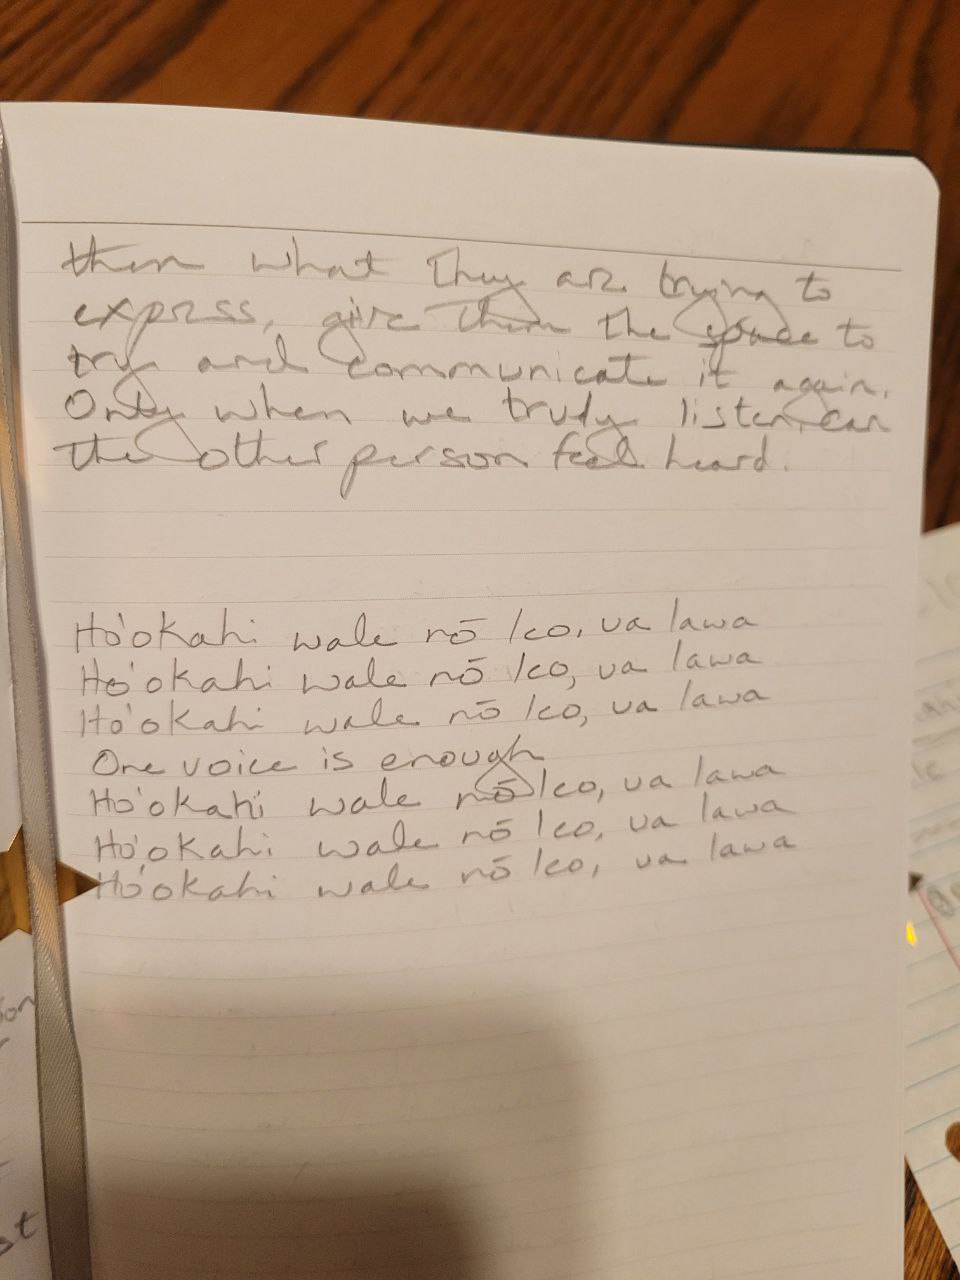 them what they are trying to
express, give them the space to
try and communicate it again.
Only when we truly listen, can
the other person feel heard.
Ho'okahi wale nō leo, ua lawa
Ho'okahi wale nō leo, ua lawa
Ho'okahi wale nō leo, ua lawa
One voice is enough
Ho'okahi wale nō leo, ua lawa
Ho'okahi wale nō leo, ua lawa
Ho'okahi wale nō leo, ua lawa